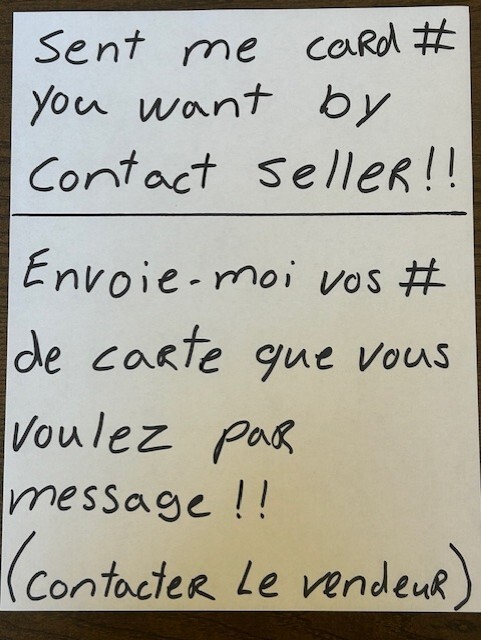 Sent me card #
you want by
contact seller!!
Envoie-moi vos #
de carte que vous
voulez par
message !!
(contacter le vendeur)